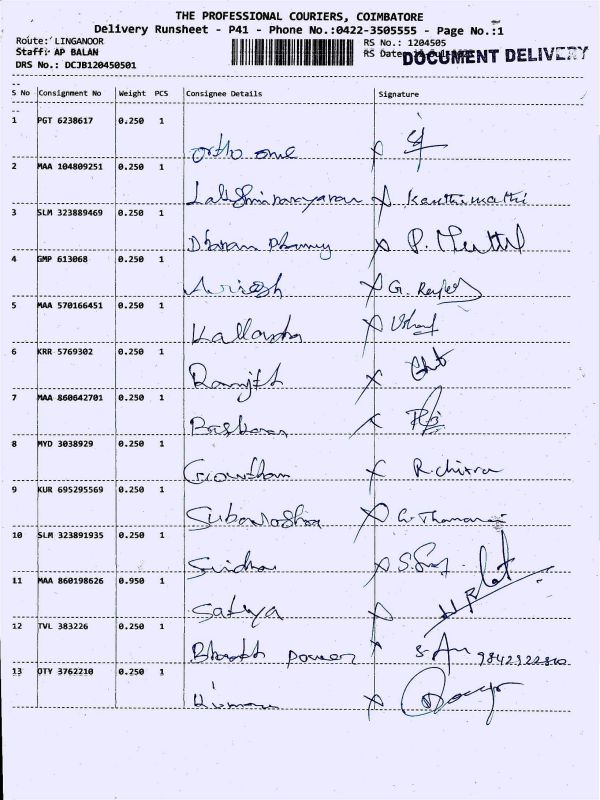 THE PROFESSIONAL COURIERS, COIMBATORE
Delivery Runsheet - P41 - Phone No.:0422-3505555 - Page No.:1
Route: LINGANOOR
RS No.: 1204505
Staff: AP BALAN
RS Date:
DOCUMENT DELIVERY
DRS No.: DCJB120450501
S No Consignment No Weight PCS Consignee Details Signature
1 PGT 6238617 0.250 1
ortho one
2 MAA 104809251 0.250 1
Lakshminarayanan X Kanthimathi
3 SLM 323889469 0.250 1
Dharan Phamy X P.
4 GMP 613068 0.250 1
X G.
5 MAA 570166451 0.250 1
X
6 KRR 5769302 0.250 1
Ranjith X
7 MAA 860642701 0.250 1
Baskaran X
8 MYD 3038929 0.250 1
Gowtham X R.chitra
9 KUR 695295569 0.250 1
X
10 SLM 323891935 0.250 1
Sridhar X
11 MAA 860198626 0.950 1
Sathya X
12 TVL 383226 0.250 1
Bharath power X
13 OTY 3762210 0.250 1
Kumaran X